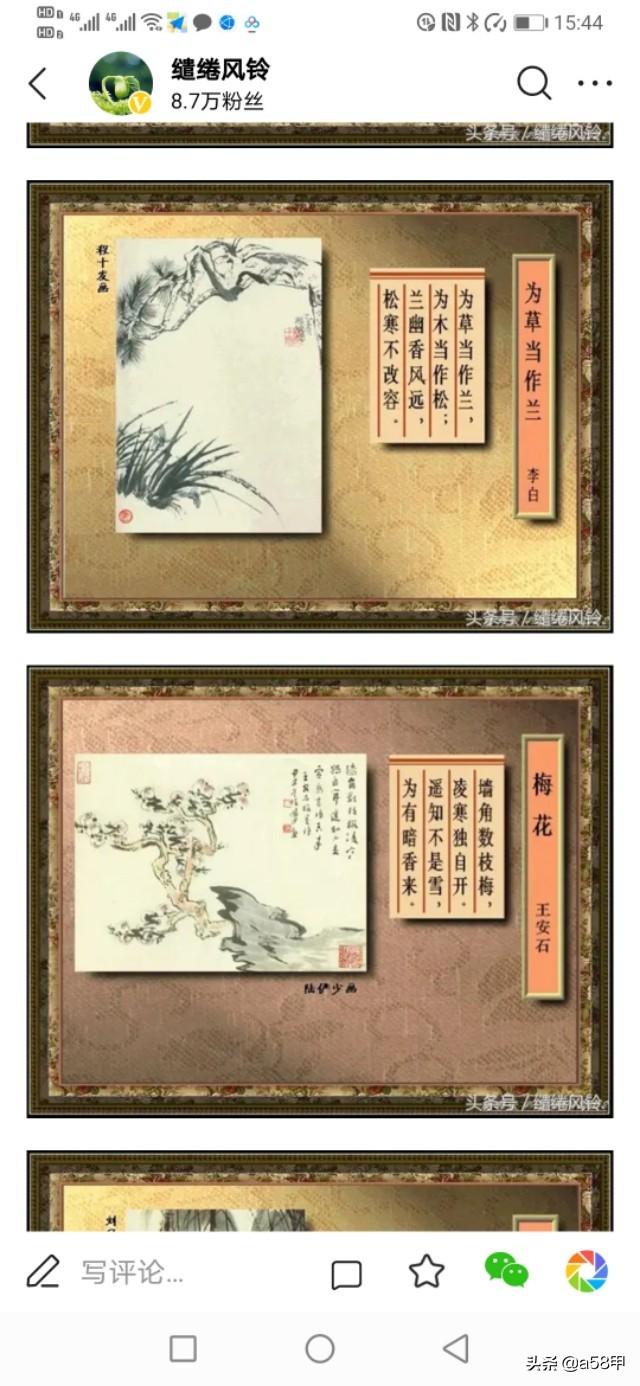 HD 1 4G 4G 15:44
HD 2
缱绻风铃
8.7万粉丝
头条号 / 缱绻风铃
为草当作兰
李白
为草当作兰，
为木当作松；
兰幽香风远，
松寒不改容。
程十发画
头条号 / 缱绻风铃
梅花
王安石
墙角数枝梅，
凌寒独自开。
遥知不是雪，
为有暗香来。
陆俨少画
头条号 / 缱绻风铃
写评论...
头条 @a58甲